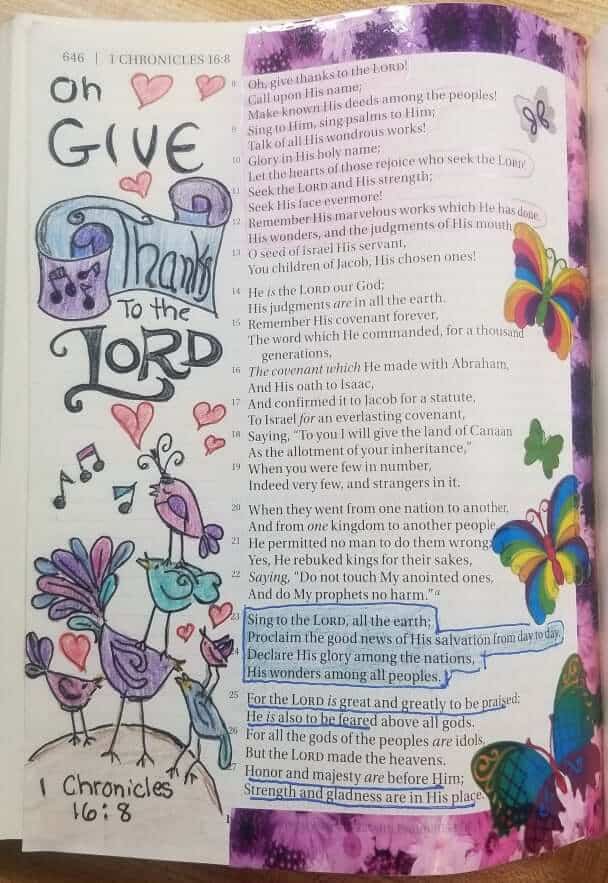 646 | 1 CHRONICLES 16:8
Oh
GIVE
Thanks
To the
LORD
1 Chronicles
16:8
8 Oh, give thanks to the LORD!
Call upon His name;
Make known His deeds among the peoples!
9 Sing to Him, sing psalms to Him;
Talk of all His wondrous works!
10 Glory in His holy name;
Let the hearts of those rejoice who seek the LORD!
11 Seek the LORD and His strength;
Seek His face evermore!
12 Remember His marvelous works which He has done,
His wonders, and the judgments of His mouth,
13 O seed of Israel His servant,
You children of Jacob, His chosen ones!
14 He is the LORD our God;
His judgments are in all the earth.
15 Remember His covenant forever,
The word which He commanded, for a thousand
generations,
16 The covenant which He made with Abraham,
And His oath to Isaac,
17 And confirmed it to Jacob for a statute,
To Israel for an everlasting covenant,
18 Saying, "To you I will give the land of Canaan
As the allotment of your inheritance,"
19 When you were few in number,
Indeed very few, and strangers in it.
20 When they went from one nation to another,
And from one kingdom to another people,
21 He permitted no man to do them wrong;
Yes, He rebuked kings for their sakes,
22 Saying, "Do not touch My anointed ones,
And do My prophets no harm."a
23 Sing to the LORD, all the earth;
Proclaim the good news of His salvation from day to day.
24 Declare His glory among the nations,
His wonders among all peoples.
25 For the LORD is great and greatly to be praised;
He is also to be feared above all gods.
26 For all the gods of the peoples are idols,
But the LORD made the heavens.
27 Honor and majesty are before Him;
Strength and gladness are in His place.